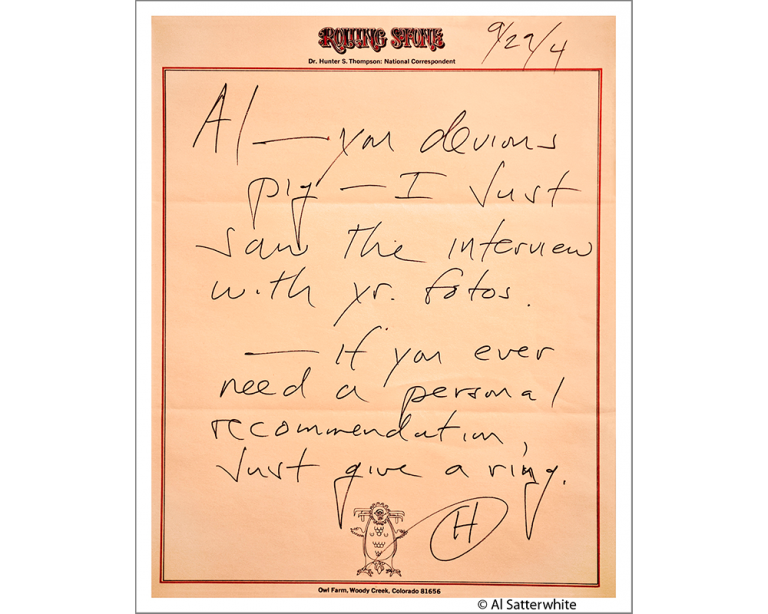 ROLLING STONE
9/29/4
Dr. Hunter S. Thompson: National Correspondent
Al — you devious
pig — I Just
saw the interview
with yr. fotos.
— If you ever
need a personal
recommendation,
Just give a ring.
H
Owl Farm, Woody Creek, Colorado 81656
© Al Satterwhite